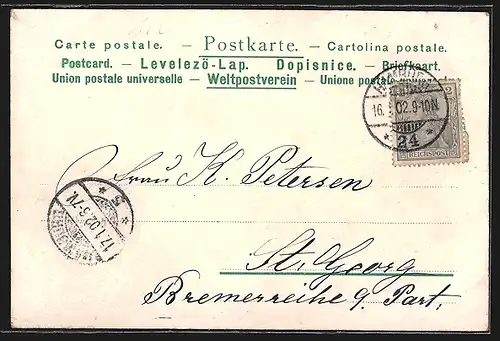 Carte postale. — Postkarte. — Cartolina postale.
Postcard. — Levelezö-Lap. Dopisnice. — Briefkaart.
Union postale universelle — Weltpostverein — Unione postale
HAMBURG
16. .02.9-10N
* 24 *
REICHSPOST
Frau K. Petersen
* 5 *
17.1.02.6-7V.
St. Georg
Bremerreihe 9. Part.